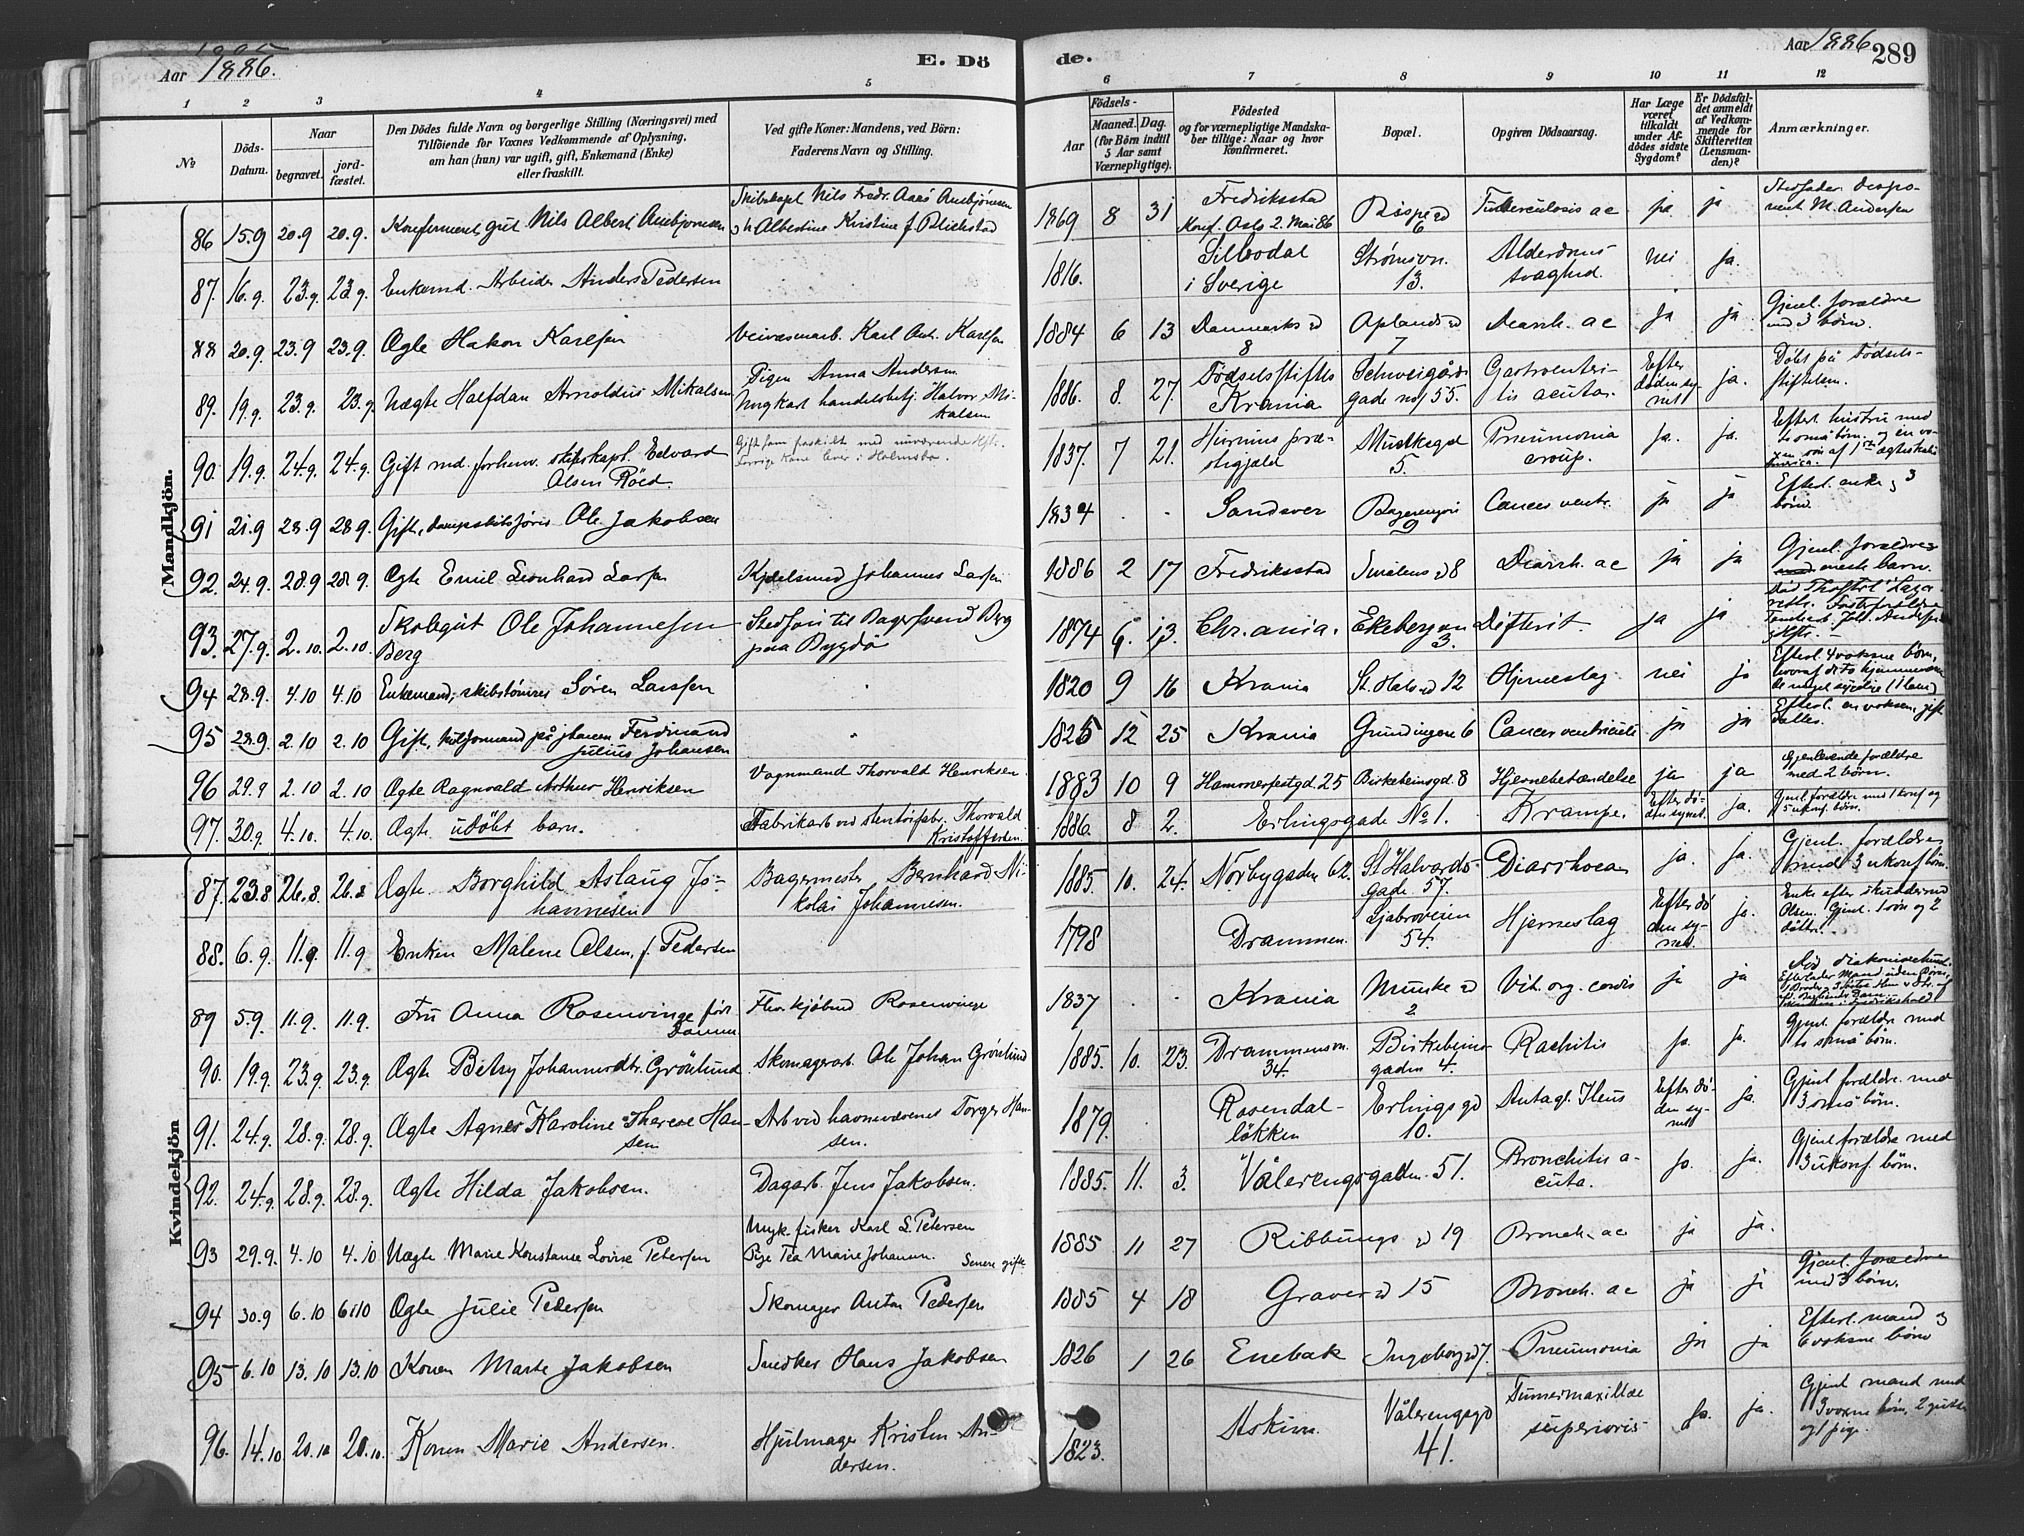 Aar 1886.
E. Dö
de.
Aar 1886
289
1 2 3 4 5 6 7 8 9 10 11 12
№
Döds-
Datum.
Naar
begravet.
jord-
fæstet.
Den Dödes fulde Navn og borgerlige Stilling (Næringsvei) med
Tilföiende for Voxnes Vedkommende af Oplysning,
om han (hun) var ugift, gift, Enkemand (Enke)
eller fraskilt.
Ved gifte Koner: Mandens, ved Börn:
Faderens Navn og Stilling.
Födsels-
Aar
Maaned. Dag.
(for Börn indtil
5 Aar samt
Værnepligtige).
Födested
og for værnepligtige Mandska-
ber tillige: Naar og hvor
konfirmeret.
Bopæl.
Opgiven Dödsaarsag.
Har Læge
været
tilkaldt
under Af-
dödes sidste
Sygdom?
Er Dödsfal-
det anmeldt
af Vedkom-
mende for
Skifteretten
(Lensman-
den)?
Anmærkninger.
Mandkjön.
86 15.9 20.9 20.9. Konfirmeret gut Nils Albert 1869 8 31 Fredriksstad
Konf. Oslo 2. Mai 86 6 Tuberculosis ac ja ja
87. 16.9. 23.9. 23.9. Enkemd. Arbeider Anders Pedersen 1816. Silbodal
i Sverige Strømsvn.
13. Alderdoms-
svaghed. nei ja.
88 20.9. 23.9 23.9. Ægte Hakon Karlsen Karl Ant. Karlsen 1884 6 13 Danmarks
8 Oplands
7 Diarrh. ac ja ja. Gjenl. forældre
med 3 børn.
89. 19.9. 23.9. 23.9. Uægte Halfdan Arnoldus Mikalsen Pigen Anna Andersen
Ungkarl handelsbetj. Halvor Mi-
kalsen 1886. 8. 27. Fødselsstiftels
Krania Schweigårds
gade no 55. Gastroenteri-
tis acuta. Efter
døden sy-
net ja. Døbt på Fødsels-
stiftelsen.
90. 19.9. 24.9. 24.9. Gift md. forhenv. skibskapt. Edvard
Olsen Röed. 1837. 7 21. præ-
stegjæld
5. Pneumonia
croup. ja. ja.
91 21.9 28.9 28.9. Gift, Ole Jakobsen 1834 - - Sandsver
9 Cancer ventr. ja ja Efterl. enke og 3
børn.
92. 24.9. 28.9 28.9. Ægte Emil Leonhard Larsen Kjedelsmed Johannes Larsen 1886 2 17 Fredriksstad Smålens 8 Diarrh. ac ja ja Gjenl. forældre
med eneste barn.
93. 27.9. 2.10. 2.10. Skolegut Ole Johannesen
Berg Stedsøn til Bagersvend Berg
paa Bygdø 1874 6. 13. Chr.ania. Ekebergvn
3. Difterit. ja ja
94 28.9. 4.10 4.10 Enkemand, skibstømrer Søren Larsen 1820 9 16 Krania St. Hals 12 Hjerneslag nei ja Efterl. 4 voksne børn,
95 28.9 2.10 2.10 Gift, Ferdinand
Julius Johansen 1825 12 25 Krania Grundingen 6 Cancer ventriculi ja ja Efterl. en voksen, gift
datter.
96 29.9 2.10 2.10 Ægte Ragnvald Arthur Henriksen Vognmand Thorvald Henriksen 1883 10 9 Hammerfestgd. 25 Birkebeinsgd. 8 Hjernebetændelse ja ja Gjenlevende forældre
med 2 børn.
97. 30.9. 4.10. 4.10. Ægte udöbt barn. Fabrikarb. ved Thorvald
Kristoffersen 1886. 8 2. Erlingsgade No 1. Krampe. Efter dö-
den synet. ja. Gjenl. forældre med 1 konf og
5 ukonf. børn.
Kvindekjön
87. 23.8 26.8. 26.8 Ægte Borghild Aslaug Jo-
hannesen Bagermester Bernhard Ni-
kolai Johannesen. 1885. 10. 24. Norbygaden 62. St. Halvards-
gade 57. Diarrhoea ja. ja. Gjenl. forældre
med 3 ukonf. børn.
88. 6.9. 11.9. 11.9 Enken Malene Olsen, f. Pedersen 1798 Drammen. Ljabroveien
54. Hjerneslag Efter dö
den sy-
net. ja. Enke efter
Olsen. Gjenl. 1 søn og 2
døtre.
89 5.9. 11.9. 11.9. Fru Anna Rosenvinge født Rosenvinge 1837 - - Krania Munke
2 Vit. org. cordis ja ja
90. 19.9. 23.9. 23.9. Ægte Betsy Johannesdtr. Grönlund Skomagerarb. Ole Johan Grönlund 1885. 10. 23. Drammensvn.
34. Birkebeins-
gaden 4. Rachitis ja. ja. Gjenl. forældre med
to små børn.
91. 24.9. 28.9. 28.9. Ægte Agnes Karoline Therese Han-
sen Arb ved havnevæsenet Torger Han-
sen. 1879. Rosendal-
løkken Erlingsgd
10. Ileus Efter dö-
den sy-
net ja. Gjenl forældre med
3 små børn.
92. 24.9. 28.9. 28.9. Ægte Hilda Jakobsen. Dagarb. Jens Jakobsen. 1885. 11. 3. Vålerengsgaden 51. Bronchitis a-
cuta. ja. ja. Gjenl forældre med
3 ukonf. børn.
93 29.9. 4.10 4.10 Uægte Marie Konstanse Lovise Petersen Ungk. fisker Karl L. Petersen
Pige Tea Marie Johansen. Senere gift. 1885 11 27 Ribbungs 19 Bronch. ac ja ja.
94 30.9 6.10 6.10 Ægte Julie Pedersen Skomager Anton Pedersen 1885 4 18 Graver 15 Bronch. ac ja ja Gjenl. forældre
med 3 børn.
95 6.10 13.10 13.10 Konen Marte Jakobsen Snedker Hans Jakobsen 1826 1 26 Enebak Ingeborg 7. Pneumonia ja ja Efterl. mand og
6 voksne børn
96. 14.10 20.10 20.10. Konen Marie Andersen. Hjulmager Kristen An-
dersen. 1823. Askim. Vålerengsgd
41. superioris ja. ja. Gjenl mand med
3 voxne børn, 2 gutter
og 1 pige.